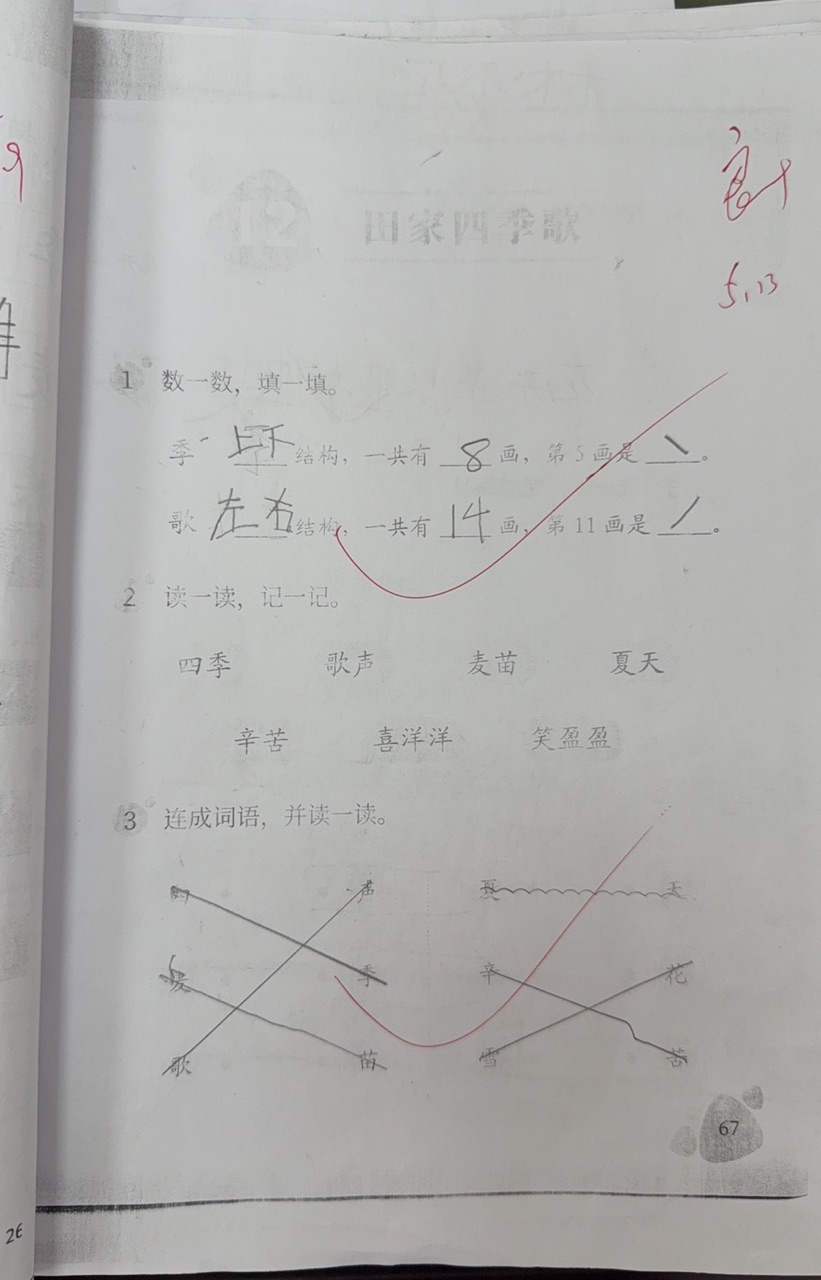 良+
12 田家四季歌
5.13
1 数一数，填一填。
季 上下结构，一共有 8 画，第5画是 ㇏。
歌 左右结构，一共有 14 画，第11画是 ㇓。
2 读一读，记一记。
四季 歌声 麦苗 夏天
辛苦 喜洋洋 笑盈盈
3 连成词语，并读一读。
四 声 夏 天
麦 季 辛 花
歌 苗 雪 苦
67